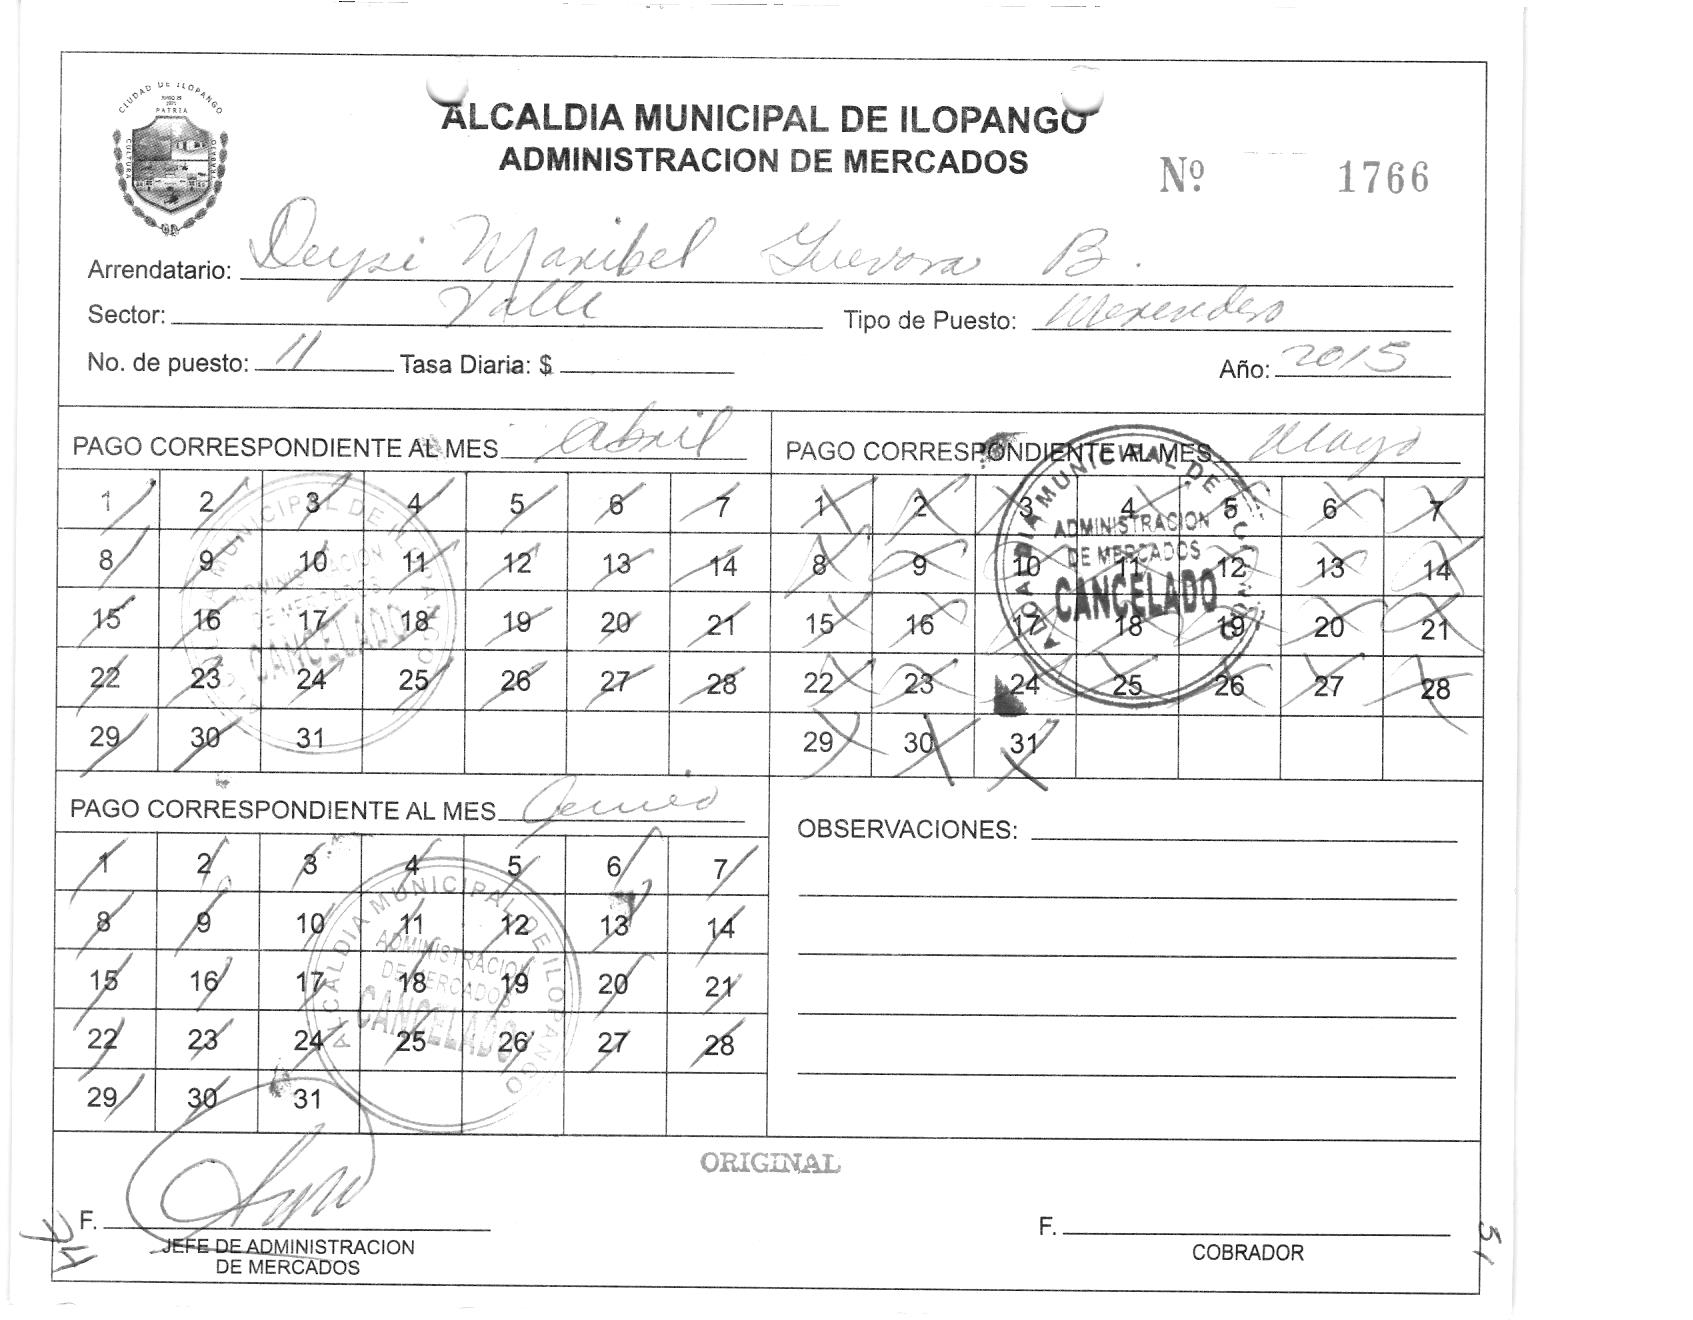 CIUDAD DE ILOPANGO
PATRIA
CULTURA
ALCALDIA MUNICIPAL DE ILOPANGO
ADMINISTRACION DE MERCADOS
Nº 1766
Arrendatario: Deysi Maribel Guevara B.
Sector: Valle Tipo de Puesto: Merendero
No. de puesto: 11 Tasa Diaria: $ Año: 2015
PAGO CORRESPONDIENTE AL MES Abril
1 2 3 4 5 6 7
8 9 10 11 12 13 14
15 16 17 18 19 20 21
22 23 24 25 26 27 28
29 30 31
ALCALDIA MUNICIPAL DE ILOPANGO
ADMINISTRACION
DE MERCADOS
CANCELADO
PAGO CORRESPONDIENTE AL MES Mayo
1 2 3 4 5 6 7
8 9 10 11 12 13 14
15 16 17 18 19 20 21
22 23 24 25 26 27 28
29 30 31
ALCALDIA MUNICIPAL DE ILOPANGO
ADMINISTRACION
DE MERCADOS
CANCELADO
PAGO CORRESPONDIENTE AL MES Junio
1 2 3 4 5 6 7
8 9 10 11 12 13 14
15 16 17 18 19 20 21
22 23 24 25 26 27 28
29 30 31
ALCALDIA MUNICIPAL DE ILOPANGO
ADMINISTRACION
DE MERCADOS
CANCELADO
OBSERVACIONES:
ORIGINAL
F.
JEFE DE ADMINISTRACION
DE MERCADOS
F.
COBRADOR
74
51